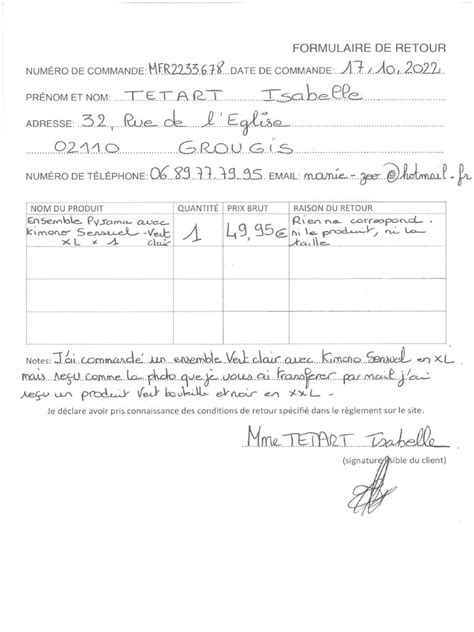 FORMULAIRE DE RETOUR
NUMÉRO DE COMMANDE: MFR2233678 DATE DE COMMANDE: 17,10,2022
PRÉNOM ET NOM: TETART Isabelle
ADRESSE: 32, Rue de l'Eglise
02110 GROUGIS
NUMÉRO DE TÉLÉPHONE: 06.89.77.79.95 EMAIL: manie-zoo@hotmail.fr
NOM DU PRODUIT QUANTITÉ PRIX BRUT RAISON DU RETOUR
Ensemble Pyjama avec Kimono Sensuel -Vert clair XL x 1
1
49,95€
Rien ne correspond.
ni le produit, ni la
taille
Notes: J'ai commandé un ensemble Vert clair avec Kimono Sensuel en XL
mais reçu comme la photo que je vous ai transferer par mail j'ai
reçu un produit Vert bouteille et noir en XXL.
Je déclare avoir pris connaissance des conditions de retour spécifié dans le règlement sur le site.
Mme TETART Isabelle
(signature lisible du client)